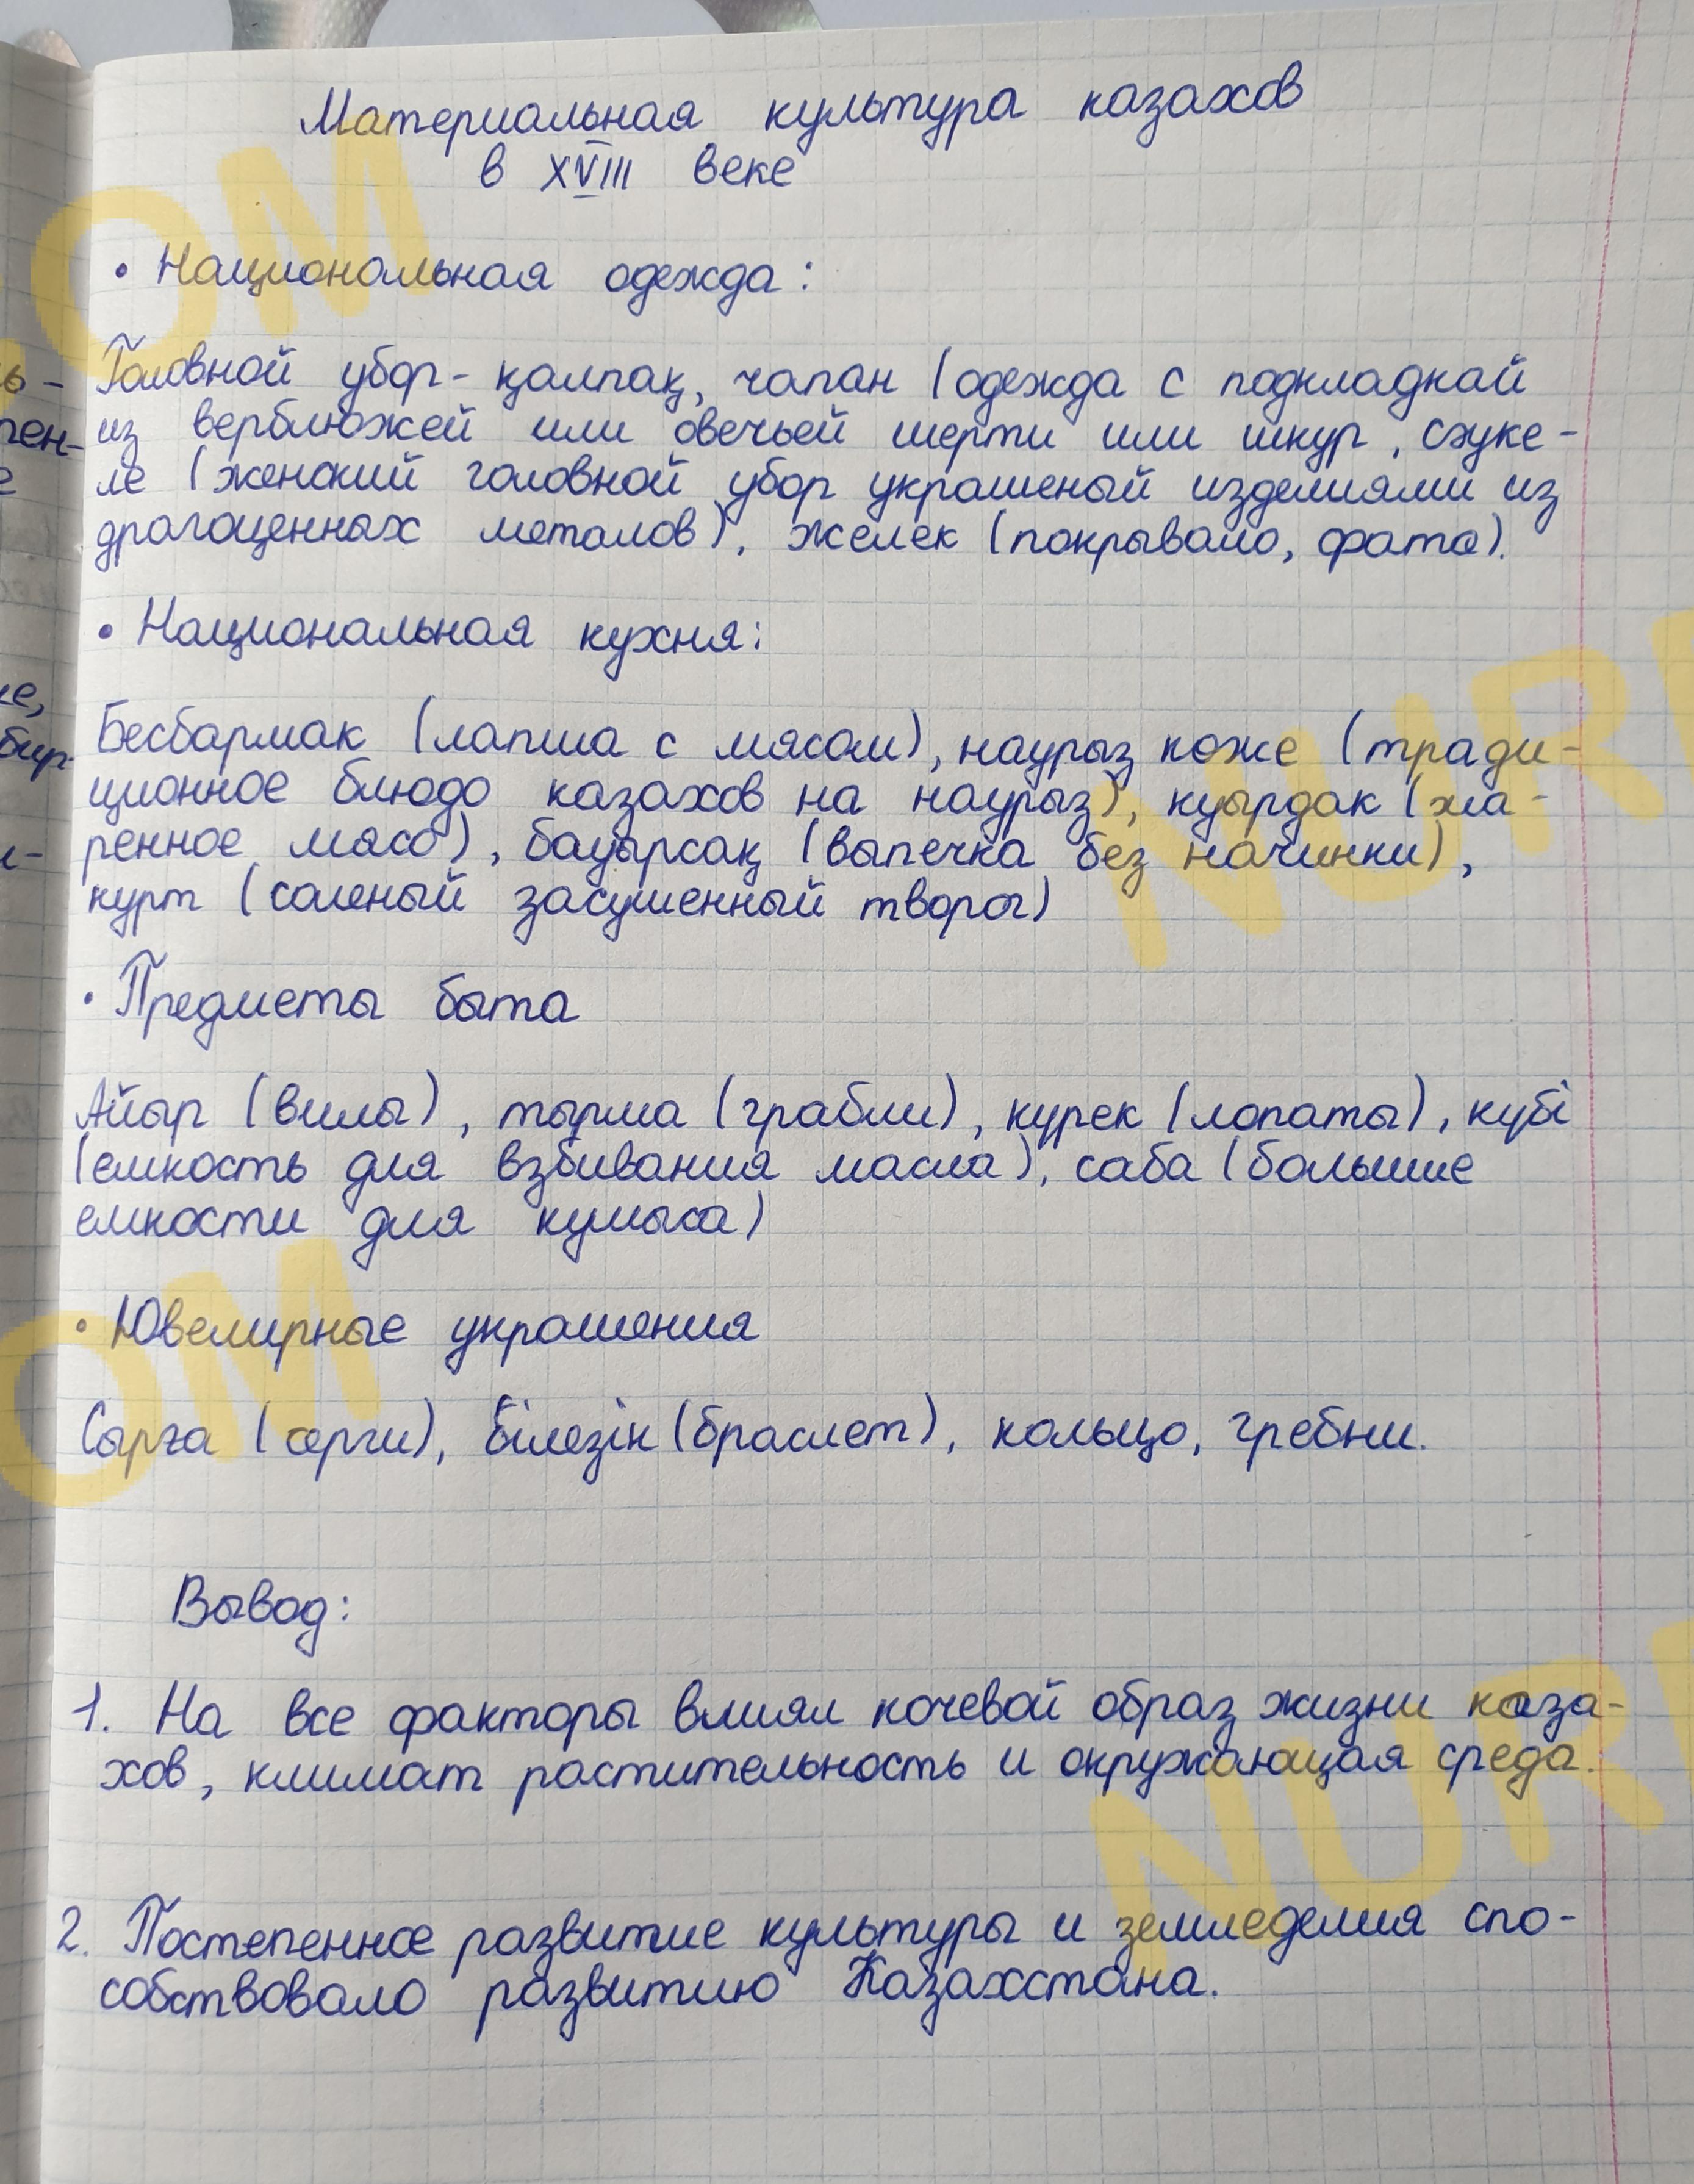 Материальная культура казахов
в XVIII веке
• Национальная одежда:
Головной убор - қалпақ, чапан (одежда с подкладкай
из верблюжей или овечьей шерти или шкур, сәуке-
ле (женский головной убор украшеный изделиями из
драгоценных металов), желек (покрывало, фата).
• Национальная кухня:
Бесбармак (лапша с мясом), наурыз коже (тради-
ционное блюдо казахов на наурыз), куырдак (жа-
ренное мясо), бауырсақ (выпечка без начинки),
курт (соленый засушенный творог)
• Предметы быта
Айыр (вилы), тырма (грабли), курек (лопаты), кубі
(емкость для взбивания масла), саба (большие
емкости для кумыса)
• Ювелирные украшения
Сырға (серги), білезік (браслет), кольцо, гребни.
Вывод:
1. На все факторы влиял кочевой образ жизни каза-
хов, климат растительность и окружающая среда.
2. Постепенное развитие культуры и земледелия спо-
собствовало развитию Казахстана.